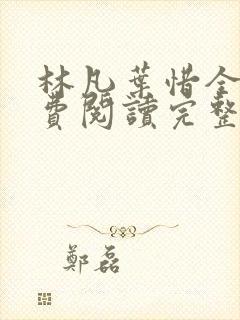 林凡葉惜全
費閱讀完整
鄭磊